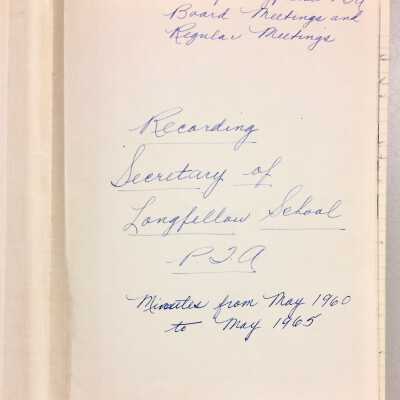 Board Meetings and
Regular Meetings
Recording
Secretary of
Longfellow School
PTA
Minutes from May 1960
to May 1965